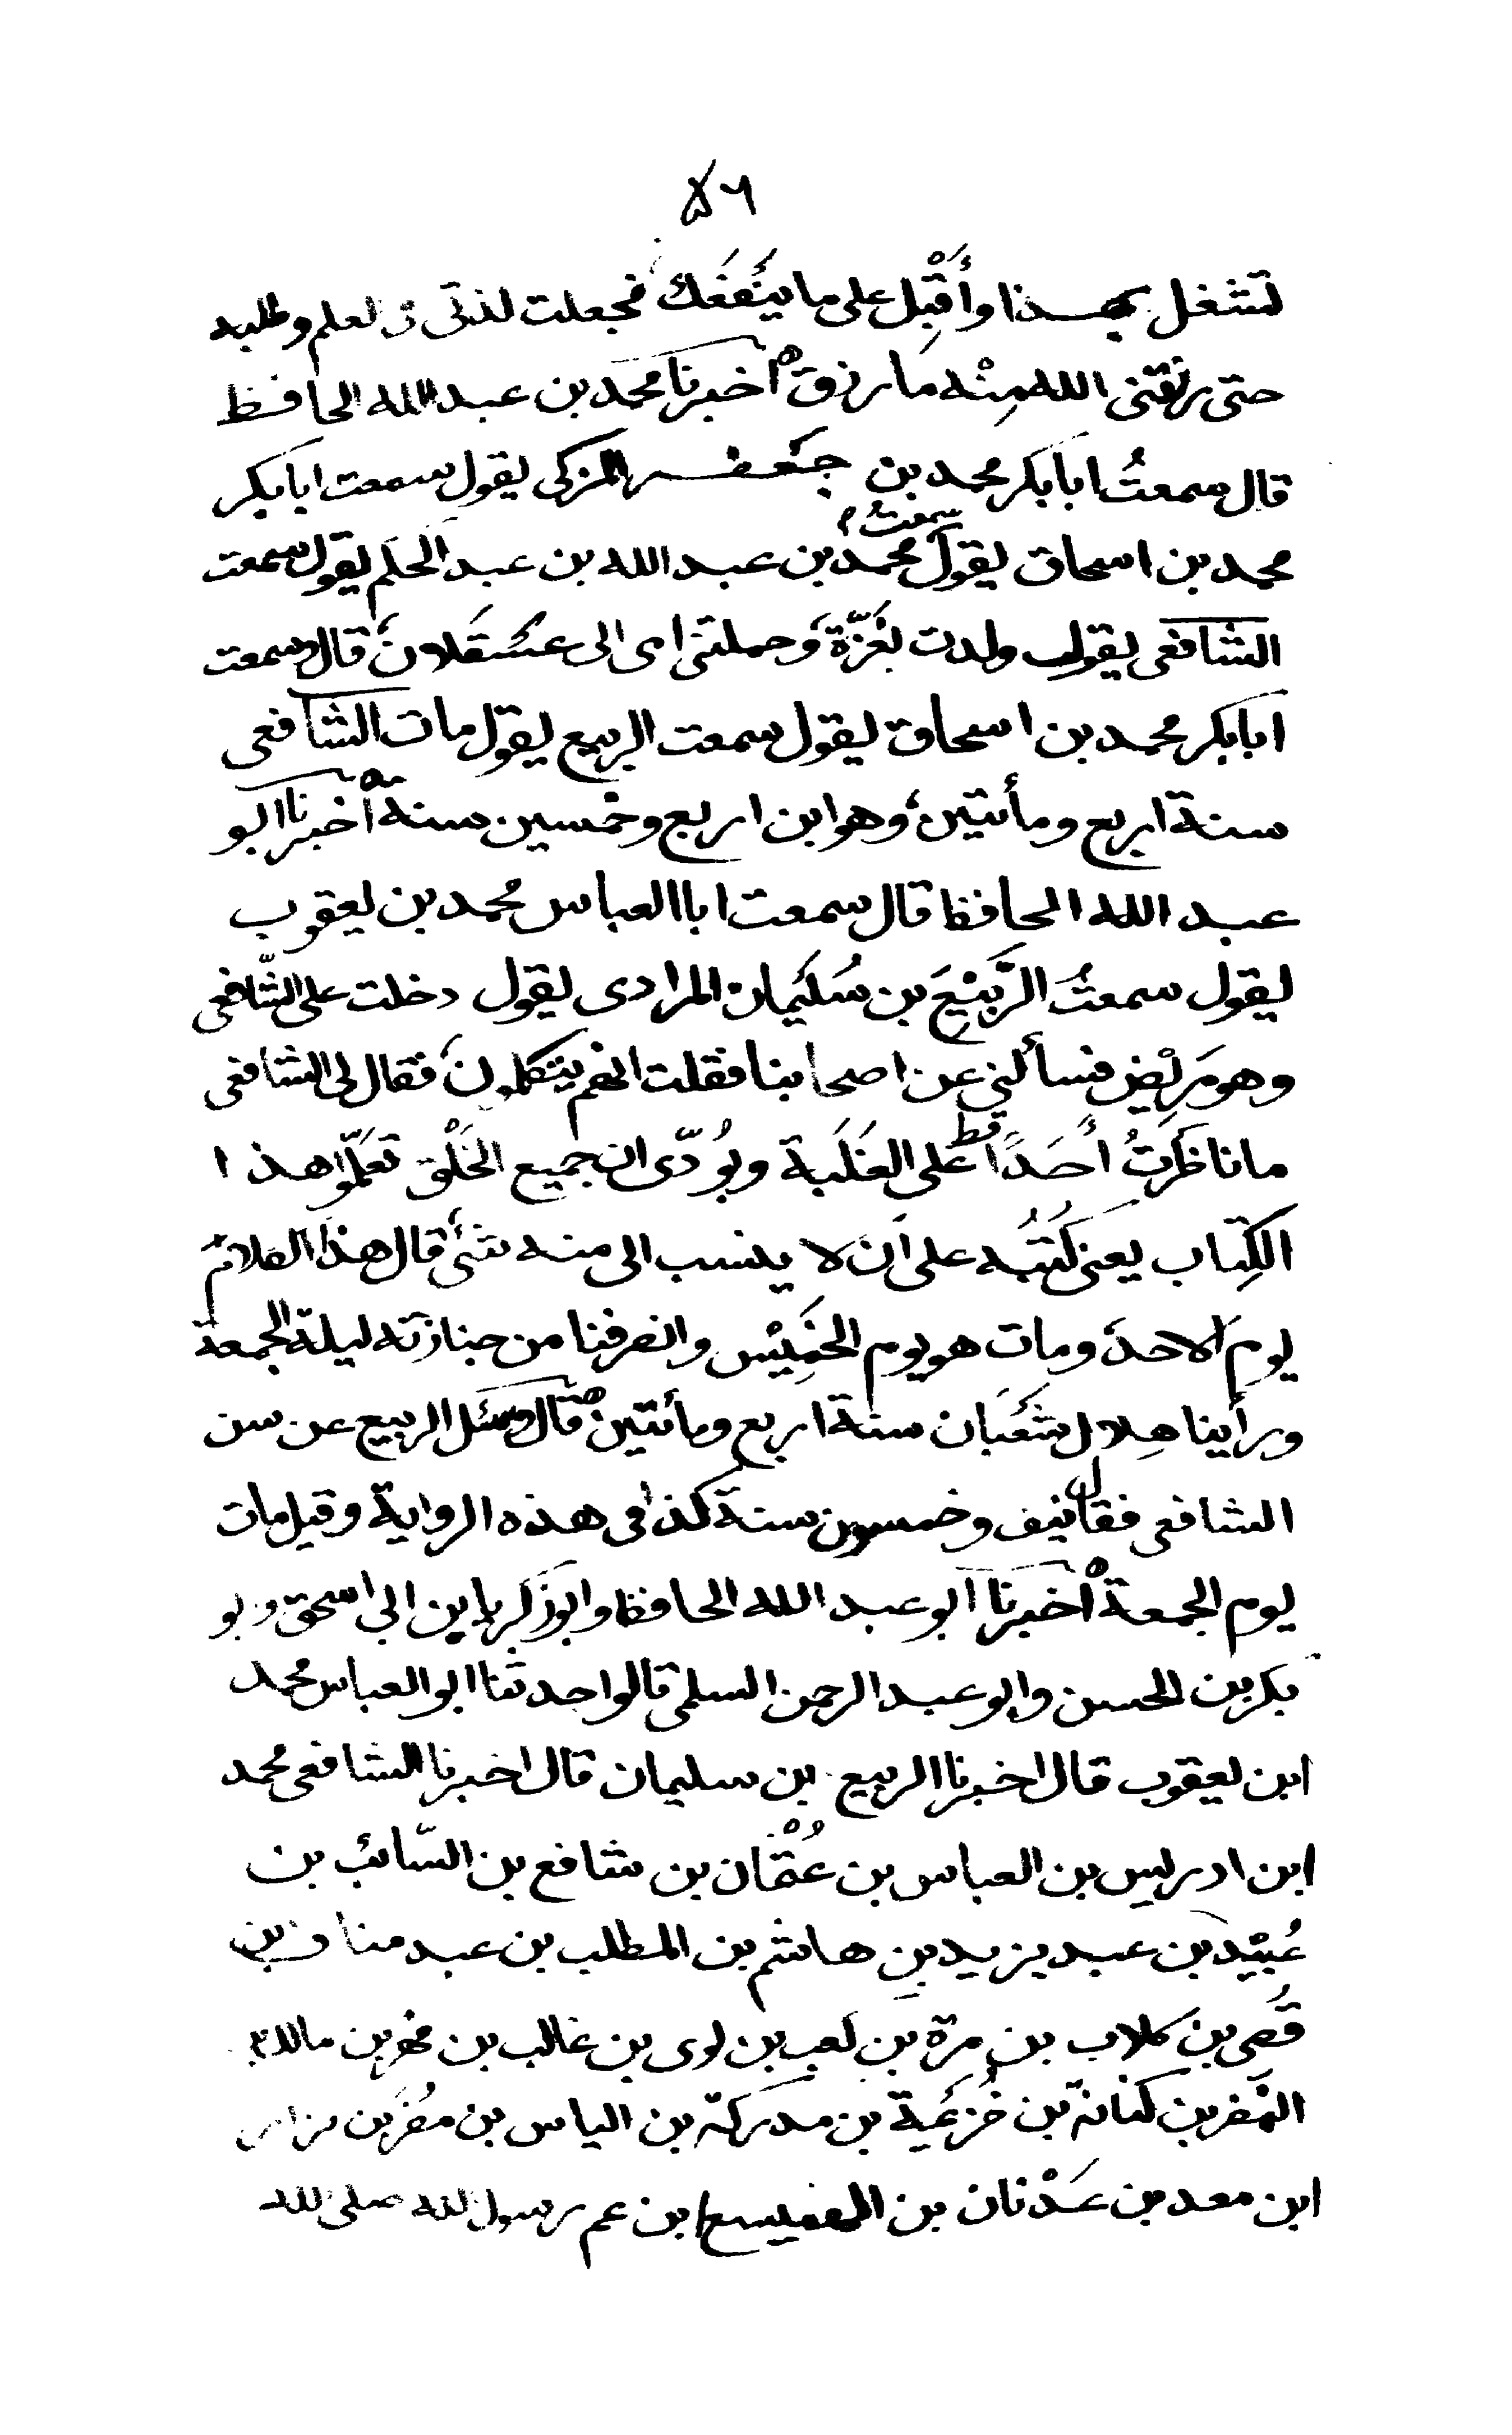 ٥٦
تشغل بهذا وأَقْبِل على ما ينَفَعَك فجعلت لذتى فى العلم وطلبه
حتى رزقنى الله مِنْه ما رزق أخبرنا محمد بن عبد الله الحافظ
قال سمعتُ ابا بكر محمد بن جعفر المزكى يقول سمعت ابا بكر
محمد بن اسحاق يقول سمعتُ محمد بن عبد الله بن عبد الحكم يقول سمعت
الشافعى يقول ولدت بغَزّة وحملتنى امى الى عَسْقَلان قال وسمعت
ابا بكر محمد بن اسحاق يقول سمعت الربيع يقول مات الشافعى
سنة اربع ومأتين وهو ابن اربع وخمسين سنة أخبرنا ابو
عبد الله الحافظ قال سمعت ابا العباس محمد بن يعقوب
يقول سمعتُ الرَّبيْعَ بن سُلَيمان المرادى يقول دخلت على الشّافعى
وهو مَرِيْض فسألنى عن اصحابنا فقلت انهم يتكلمون فقال لى الشافعى
ما ناظَرتُ أحَدًا قط على الغَلَبة وبُودّى ان جميع الخَلْق تعَلّموا هذا
الكِتاب يعنى كُتُبُه على اَن لا ينسب الى منه شئ قال هذا الكلامَ
يوم الاحد ومات هو يوم الخَمِيْس وانصرفنا من جنازته ليلة الجمعة
ورأينا هِلال شَعْبَان سنة اربع ومأتين قال وسئل الربيع عن سن
الشافعى فقال نيف وخمسون سنة كذا فى هذه الرواية وقيل مات
يوم الجمعة أخبرنا ابو عبد الله الحافظ وابو زكريا بن ابى اسحق وابو
بكر بن الحسن وابو عبد الرحمن السلمى قالوا حدثنا ابو العباس محمد
ابن يعقوب قال اخبرنا الربيع بن سليمان قال اخبرنا الشافعى محمد
ابن ادريس بن العباس بن عُثْمان بن شافع بن السّائب بن
عُبيْد بن عبد يزيد بن هاشم بن المطلب بن عبد مناف بن
قُصى بن كلاب بن مرة بن كعب بن لوى بن غالب بن فهر بن مالك بن
النضر بن كنانة بن خُزيمة بن مدركة بن الياس بن مضَر بن نزار
ابن معد بن عَدْنان بن الهميسع ابن عم رسول الله صلى الله